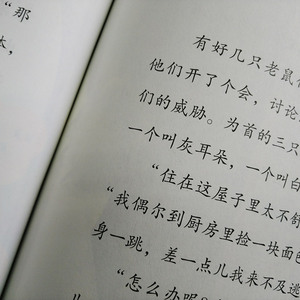 “那
本，
有好几只老鼠
他们开了个会，讨论
们的威胁。为首的三只
一个叫灰耳朵，一个叫白
“住在这屋子里太不舒
“我偶尔到厨房里捡一块面包
身一跳，差一点儿我来不及逃
“怎么办呢